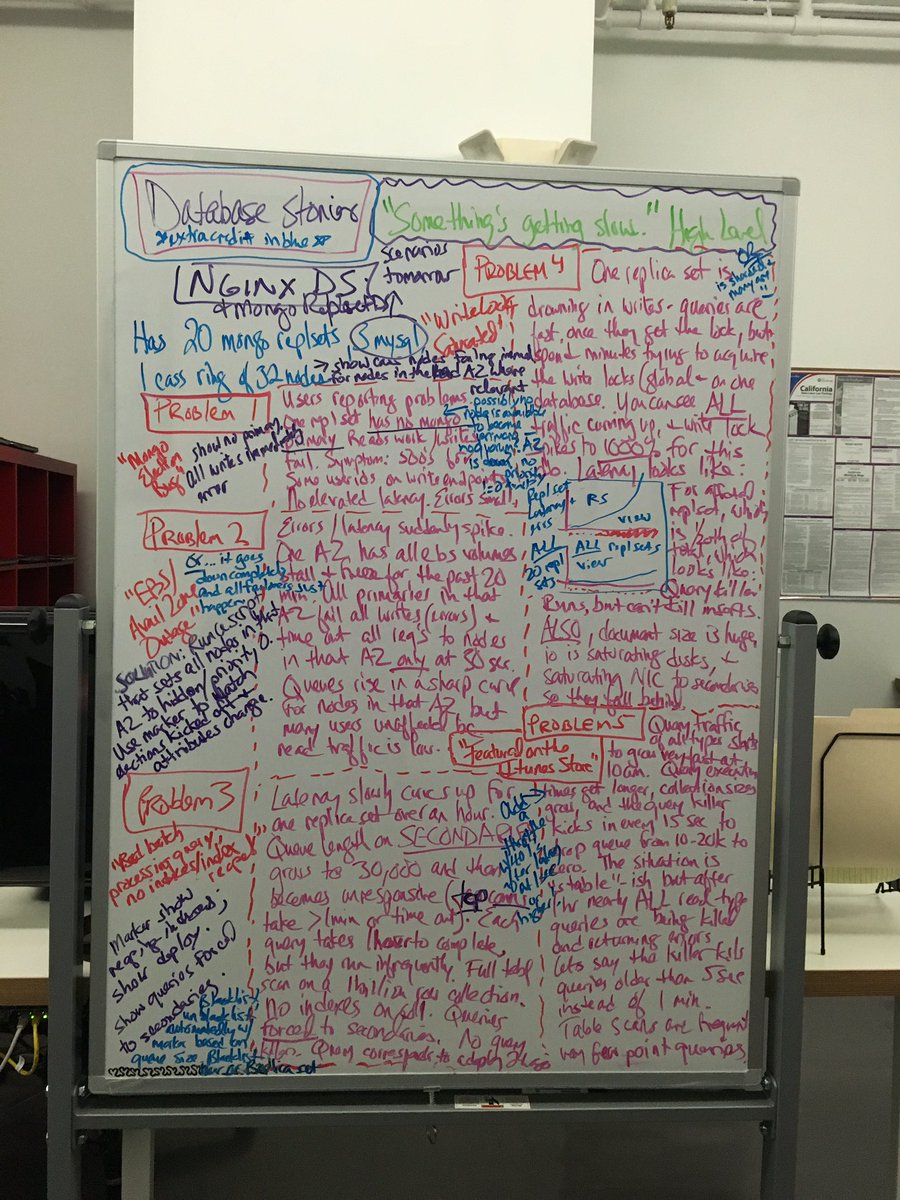 Database Stories
*extra credit in blue*
"Something's getting slow." High Level
NGINX DS
+ Mongo Replset DS
scenarios
tomorrow
Has 20 mongo replsets, 5 mysql
1 cass ring of 32 nodes
> show cass nodes failing
for nodes in the AZ
PROBLEM 1
"Mongo
Election
Bug"
show no primary,
all writes immediately
error
Users reporting problems.
One repl set has no mongo
primary. Reads work, writes
fail. Symptom: 500s for
some userids on write endpoints
No elevated latency. Errors small,
relevant
possibly no
node is available
to become
primary
PROBLEM 2
"EBS/
Avail Zone
Outage"
Or... it goes
down completely
and all failovers just
happen
SOLUTION: Run a script
that sets all nodes in that
AZ to hidden/priority 0.
Use marker to match
elections kicked off +
attributes change.
Errors/latency suddenly spike.
One AZ has all ebs volumes
stall + freeze for the past 20
min. All primaries in that
AZ fail all writes (errors) +
time out all reqs to nodes
in that AZ only at 30 sec.
Queues rise in a sharp curve
for nodes in that AZ but
many users unaffected bc
read traffic is low.
Problem 3
"Bad batch
processing query,
no indices/index
Marker show
reqs,
show deploy.
Show queries forced
to secondaries.
Blacklist/
unblacklist
automatically w/
marker based on
queue size. Blacklist
Latency slowly curves up for
one replica set over an hour.
Queue length on SECONDARIES
grows to 30,000 and then
becomes unresponsive (tcp conns
take >1 min or time out). Each
query takes 1 hour to complete,
but they run infrequently. Full table
scan on a 1 billion row collection.
No indexes on coll. Queries
forced to secondaries. No query
killer. Query corresponds to a deploy
PROBLEM 4
"Write Lock
Saturated"
One replica set is
drowning in writes - queries are
fast, once they get the lock, but
spend minutes trying to acquire
the write locks (global or on one
database. You can see ALL
traffic coming up, + write lock
spikes to 1000% for this
Latency looks like:
OR
is sharded +
many are
Repl set
latency
RS
VIEW
ALL
20 repl
sets
ALL replsets
view
For affected
replset, which
is 1/20th of
total, which
looks like:
Query killer
Runs, but can't kill inserts.
ALSO, document size is huge,
io is saturating disks, +
saturating NIC to secondaries
so they fall behind.
PROBLEM 5
"Featured on the
Itunes Store"
Query traffic
of all types starts
to grow very fast at
10am. Query execution
times get longer, collection sizes
grow, and the query killer
kicks in every 15 sec to
drop queue from 10-20k to
zero. The situation is
"stable"-ish but after
1hr nearly ALL read type
queries are being killed
and returning errors
Lets say the killer kills
queries older than 5 sec
instead of 1 min.
Table scans are frequent
very few point queries
California